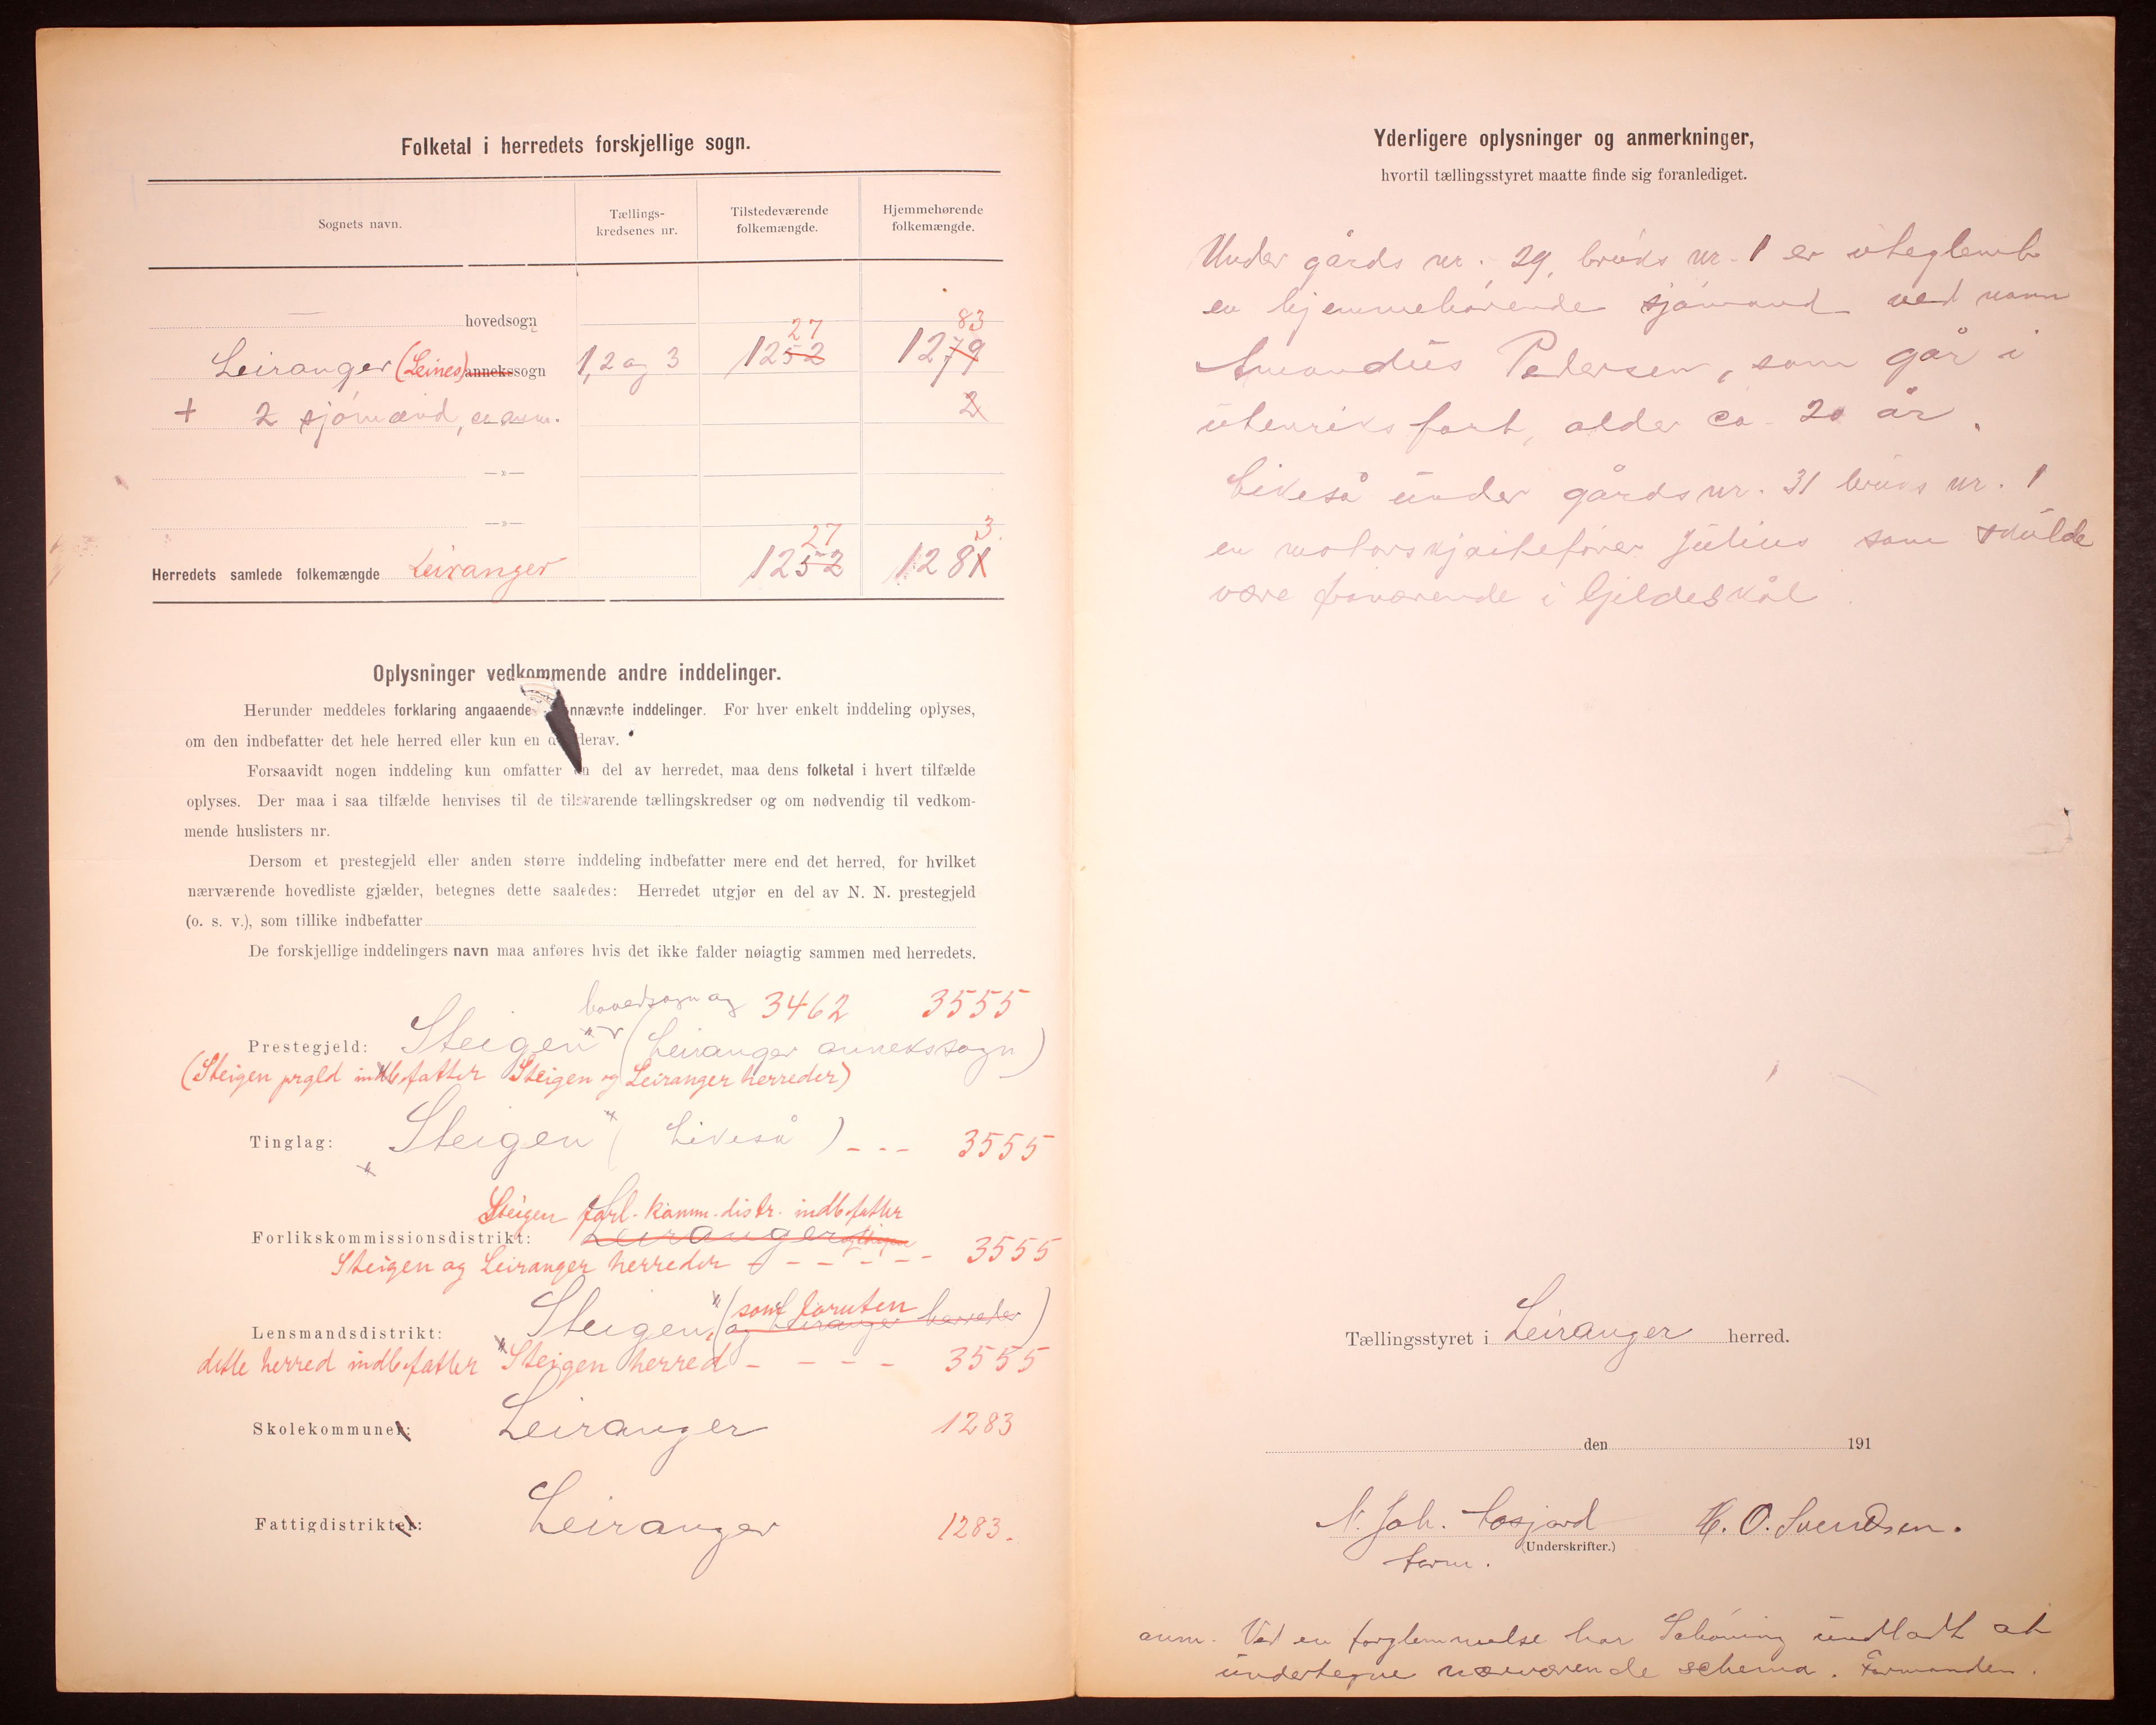 Folketal i herredets forskjellige sogn.
Sognets navn.
Tællings-
kredsenes nr.
Tilstedeværende
folkemængde.
Hjemmehørende
folkemængde.
hovedsogn
27 83
Leiranger (Leines) annekssogn 1, 2 og 3 1252 1279
+ 2 sjømænd, se anm. 2
—»—
—»—
27 3.
Herredets samlede folkemængde Leiranger 1252 1281
Oplysninger vedkommende andre inddelinger.
Herunder meddeles forklaring angaaende nnævnte inddelinger. For hver enkelt inddeling oplyses,
om den indbefatter det hele herred eller kun en derav.
Forsaavidt nogen inddeling kun omfatter en del av herredet, maa dens folketal i hvert tilfælde
oplyses. Der maa i saa tilfælde henvises til de tilsvarende tællingskredser og om nødvendig til vedkom-
mende huslisters nr.
Dersom et prestegjeld eller anden større inddeling indbefatter mere end det herred, for hvilket
nærværende hovedliste gjælder, betegnes dette saaledes: Herredet utgjør en del av N. N. prestegjeld
(o. s. v.), som tillike indbefatter
De forskjellige inddelingers navn maa anføres hvis det ikke falder nøiagtig sammen med herredets.
hovedsogn og 3462 3555
Prestegjeld: Steigen (Leiranger annekssogn)
(Steigen prgld indbefatter Steigen og Leiranger herreder)
Tinglag: Steigen (Likeså) - - - 3555
Steigen forl. komm. distr. indbefatter
Forlikskommissionsdistrikt: Leiranger og Steigen
Steigen og Leiranger herreder - - - - - 3555
som foruten
Lensmandsdistrikt: Steigen, (og Leiranger herreder)
dette herred indbefatter Steigen herred - - - - 3555
Skolekommuner: Leiranger 1283
Fattigdistrikter: Leiranger 1283.
Yderligere oplysninger og anmerkninger,
hvortil tællingsstyret maatte finde sig foranlediget.
Under gårds nr. 29, bruks nr. 1 er uteglemt
en hjemmehørende sjømand ved navn
Amandus Pedersen, som går i
utenriks fart, alder ca. 20 år.
Likeså under gårds nr. 31 bruks nr. 1
en motorskjøitefører Julius som skulde
være fraværende i Gildeskål
Tællingsstyret i Leiranger herred.
den 191
N. Joh. H. O. Svendsen.
(Underskrifter.)
form.
anm. Ved en forglemmelse har Schøning undladt at
undertegne nærværende schema. Formanden.